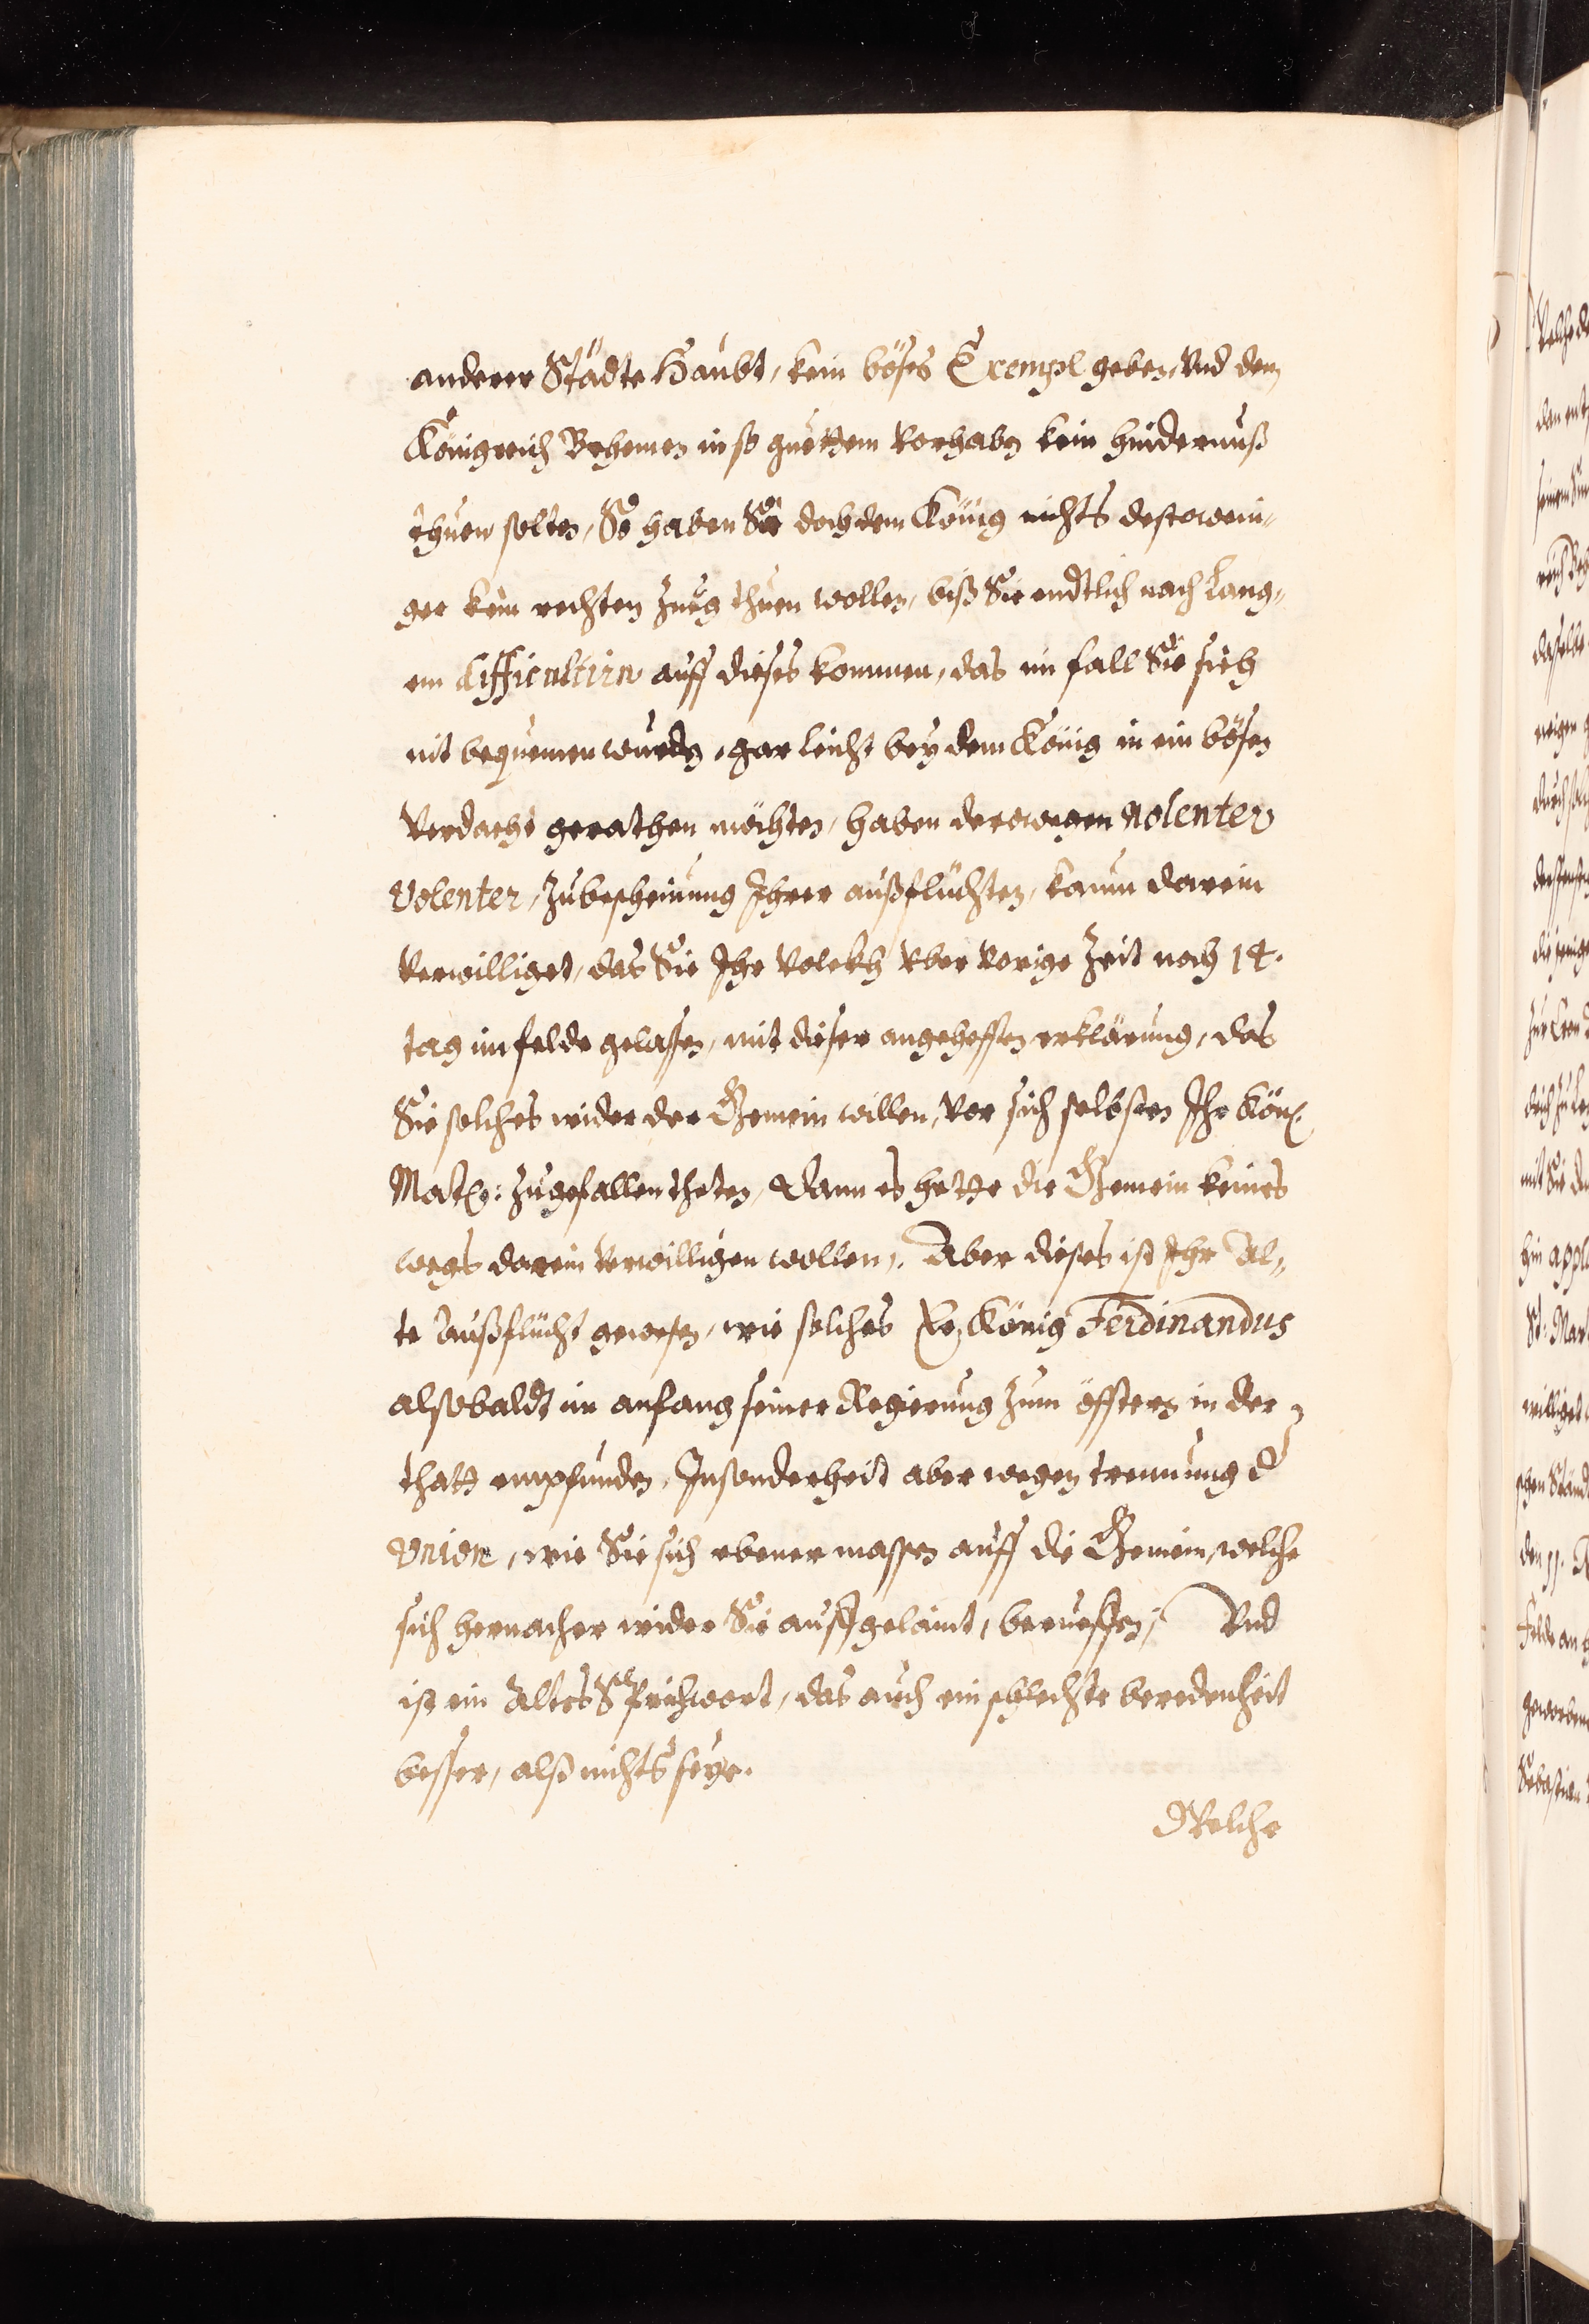 anderer Städte Haubt, kein böses Exempl geben, Vnd dem
Königreich Behemen in so guettem Vorhaben kein hindernuß
thuen solten, So haben Sie doch dem König nichts destowein„
ger kein rechten Zueg thuen wollen, biß Sie endtlich nach Lang„
em difficultirn auff dieses kommen, das im fall Sie sich
nit bequemen wurden, gar leicht bey dem König in ein bösen
Verdacht gerathen möchten, haben derowegen nolenter
Volenter, Zubescheinung Ihrer außflüchten, kaum darein
Verwilliget, das Sie Ihr Volckh Vber Vorige Zeit noch 14.
tag im felde gelassen, mit dieser angehefften erklärung, das
Sie solches wider der Gemein willen, Vor sich selbsten Ihr Kön.
Matt: Zugefallen theten, Dann es hette die Gemein keines
wegs darein Verwilligen wollen. Aber dieses ist Ihr Al„
te Außflucht gewesen, wie solches König Ferdinandus
alsobaldt im anfang seiner Regierung Zum öfftern in der
thatt empfunden, Insonderheit aber wegen trennung d
Vnion, wie Sie sich ebener massen auff die Gemein, welche
sich hernacher wider Sie auffgelaint, berueffen; Vnd
ist ein Altes Sprichwort, das auch ein schlechte beredenheit
besser, alß nichts seye.
Welche